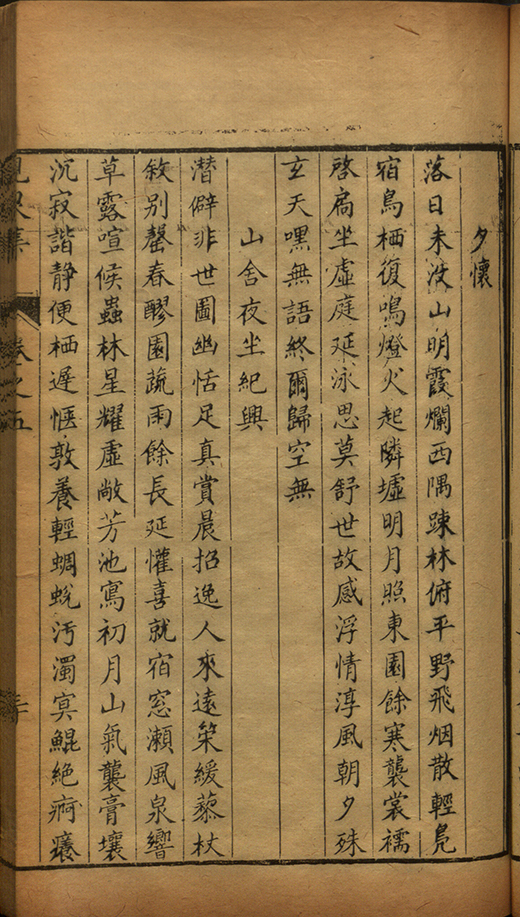 夕懷
落日未沒山明霞爛西隅踈林俯平野飛烟散輕鳧
宿鳥栖復鳴燈火起隣墟明月照東園餘寒襲裳襦
啓扄坐虛庭延泳思莫舒世故感浮情淳風朝夕殊
玄天嘿無語終爾歸空無
山舍夜坐紀興
潛僻非世圖幽恬足真賞晨招逸人來遠策緩藜杖
敘別罄春醪園蔬雨餘長延懽喜就宿窓瀨風泉響
草露喧候蟲林星耀虛敞芳池寫初月山氣襲膏壤
沉寂諧靜便栖遲愜敦養輕蜩蛻汚濁冥鯤絶痾癢
集 卷之五